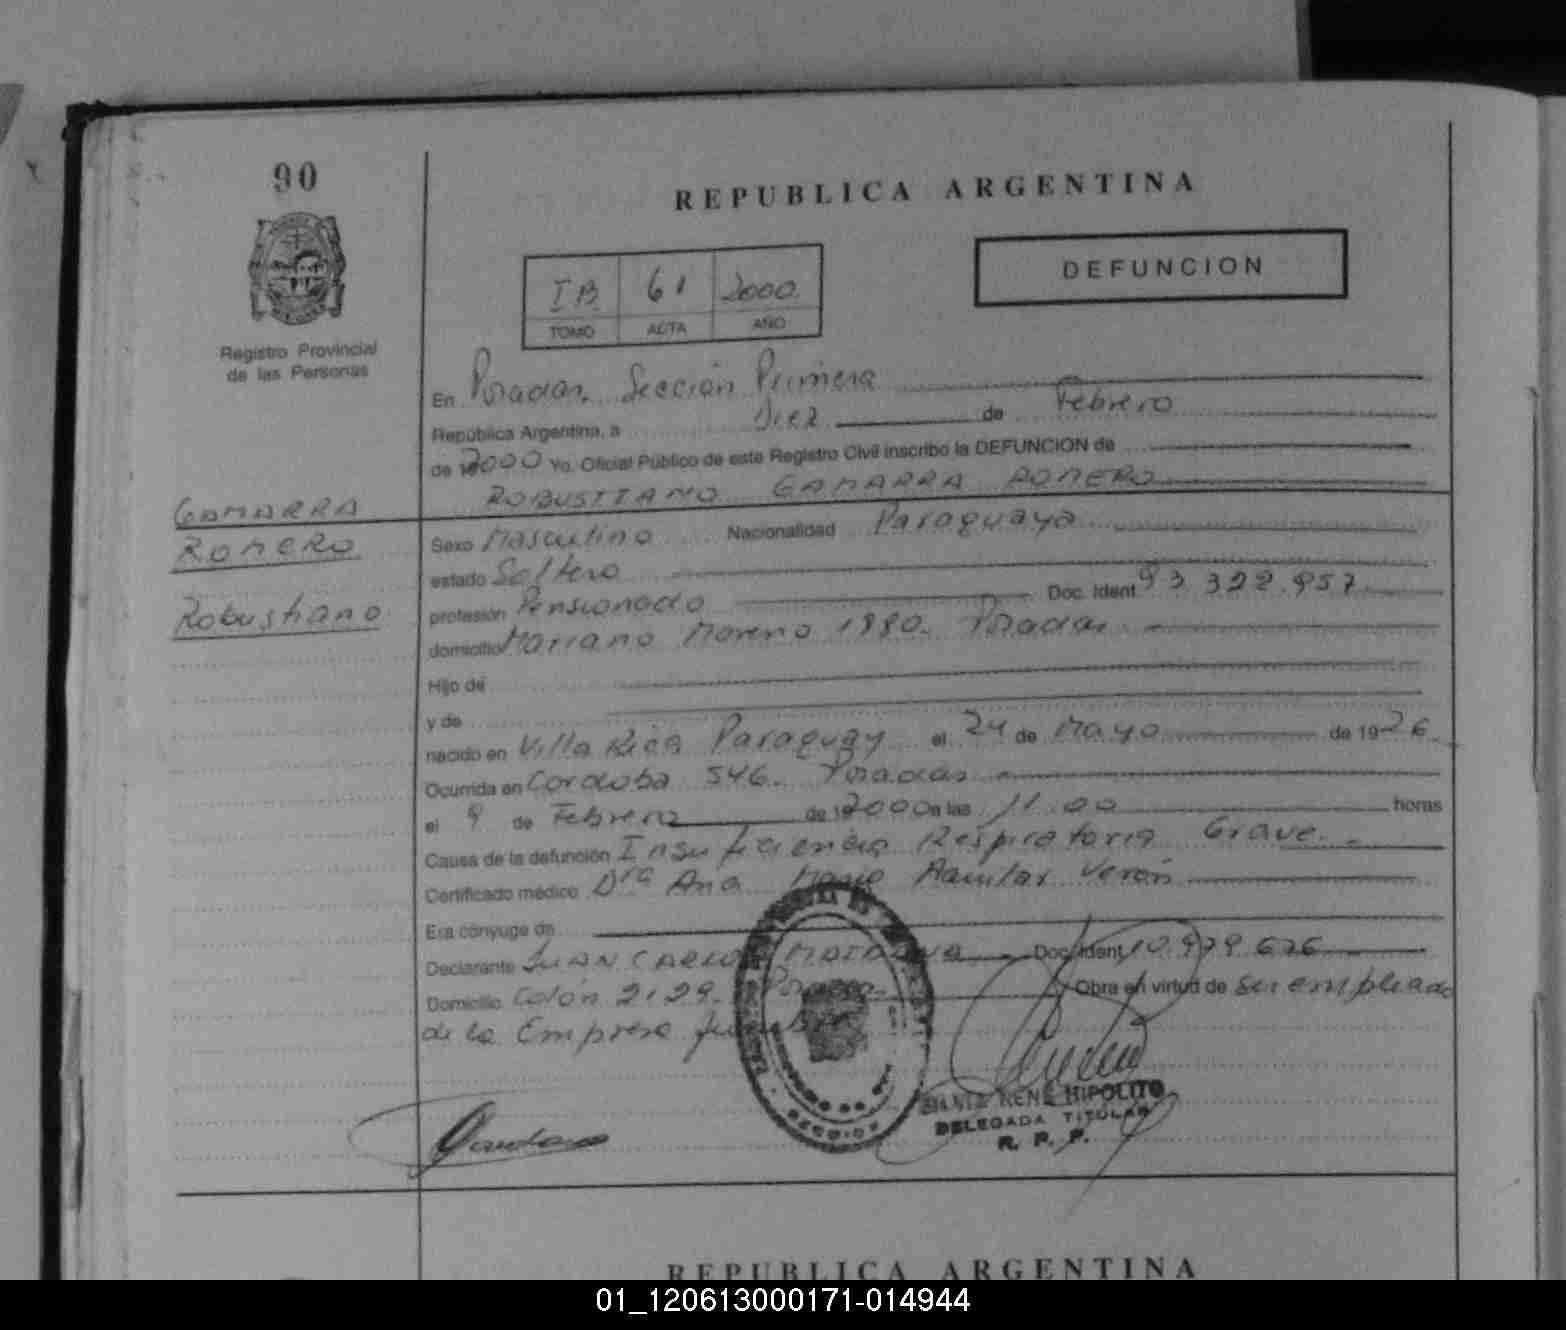 90
REPUBLICA ARGENTINA
DEFUNCION
IB 61 2000
TOMO ACTA AÑO
Registro Provincial
de las Personas
En Posadas. Sección Primera
República Argentina, a Diez de Febrero
de 192000 Yo, Oficial Público de este Registro Civil inscribo la DEFUNCION de
ROBUSTIANO GAMARRA ROMERO
GAMARRA
ROMERO
Robustiano
Sexo Masculino Nacionalidad Paraguaya
estado Soltero
profesión Pensionado Doc. Ident. 93.322.957
domicilio Mariano Moreno 1880. Posadas
Hijo de
y de
nacido en Villa Rica Paraguay el 24 de Mayo de 1926
Ocurrida en Cordoba 546. Posadas
el 9 de Febrero de 192000 a las 11.00 horas
Causa de la defunción Insuficiencia Respiratoria Grave.
Certificado médico Dra Ana Maria Aguilar Verón
Era cónyuge de
Declarante JUAN CARLOS Doc. Ident. 10.979.626
Domicilio Colón 2129. Posadas. Obra en virtud de ser empleado
de la Empresa
RENE HIPOLITO
DELEGADA TITULAR
R. P. P.
REPUBLICA ARGENTINA
01_120613000171-014944